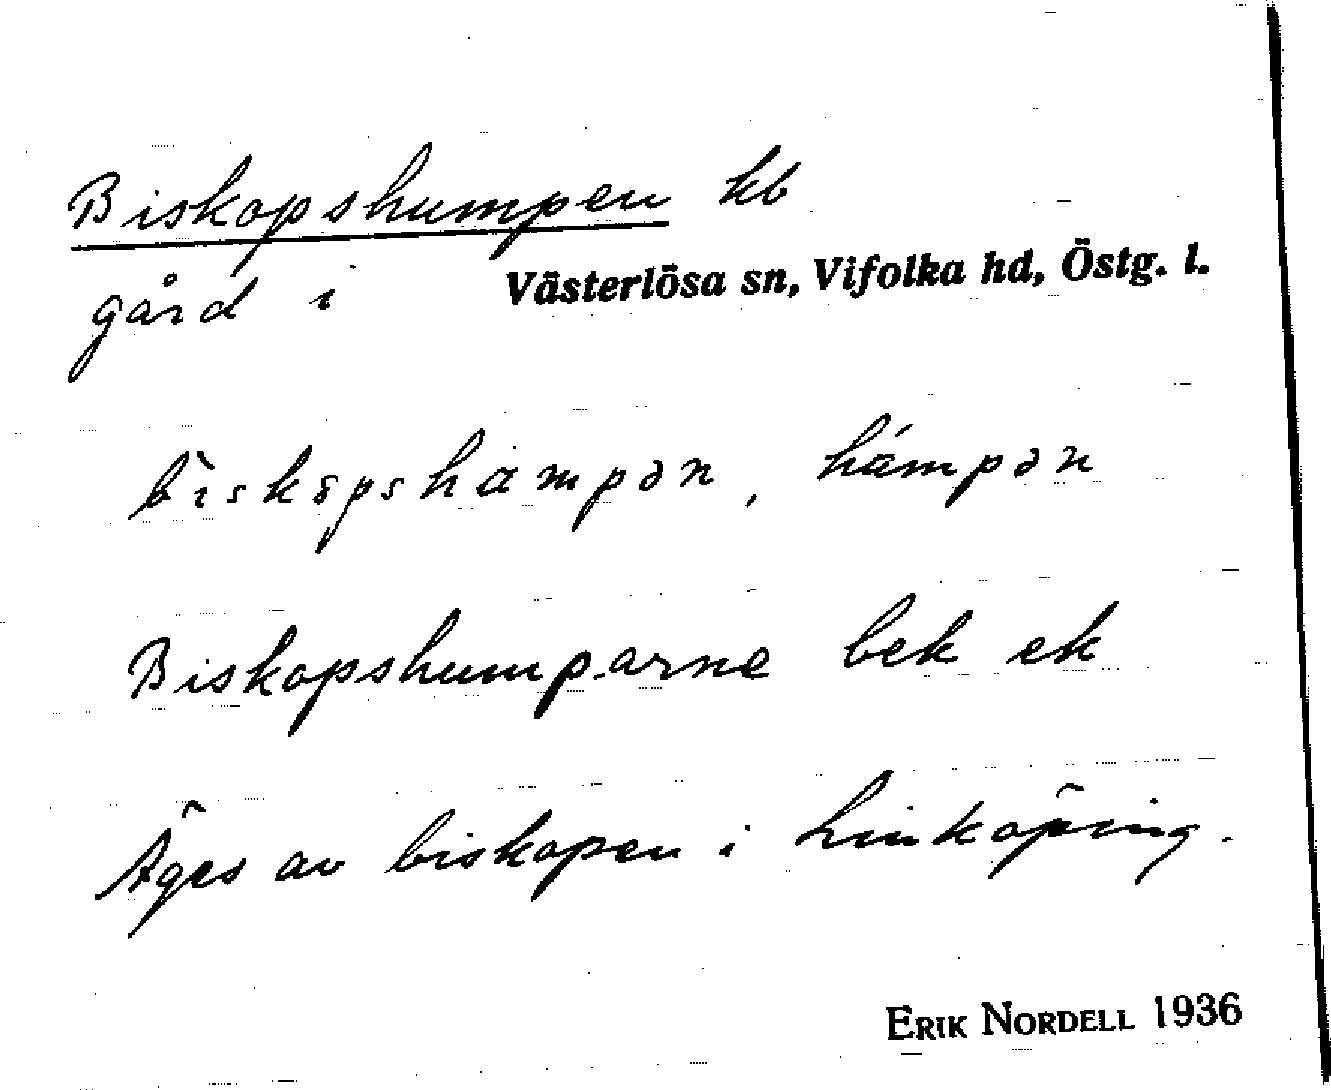 Biskopshumpen kb
gård i Västerlösa sn, Vifolka hd, Östg. l.
bìskɔpshampən, hámpən
Biskopshumparne bek ek
Äges av biskopen i Linköping.
ERIK NORDELL 1936